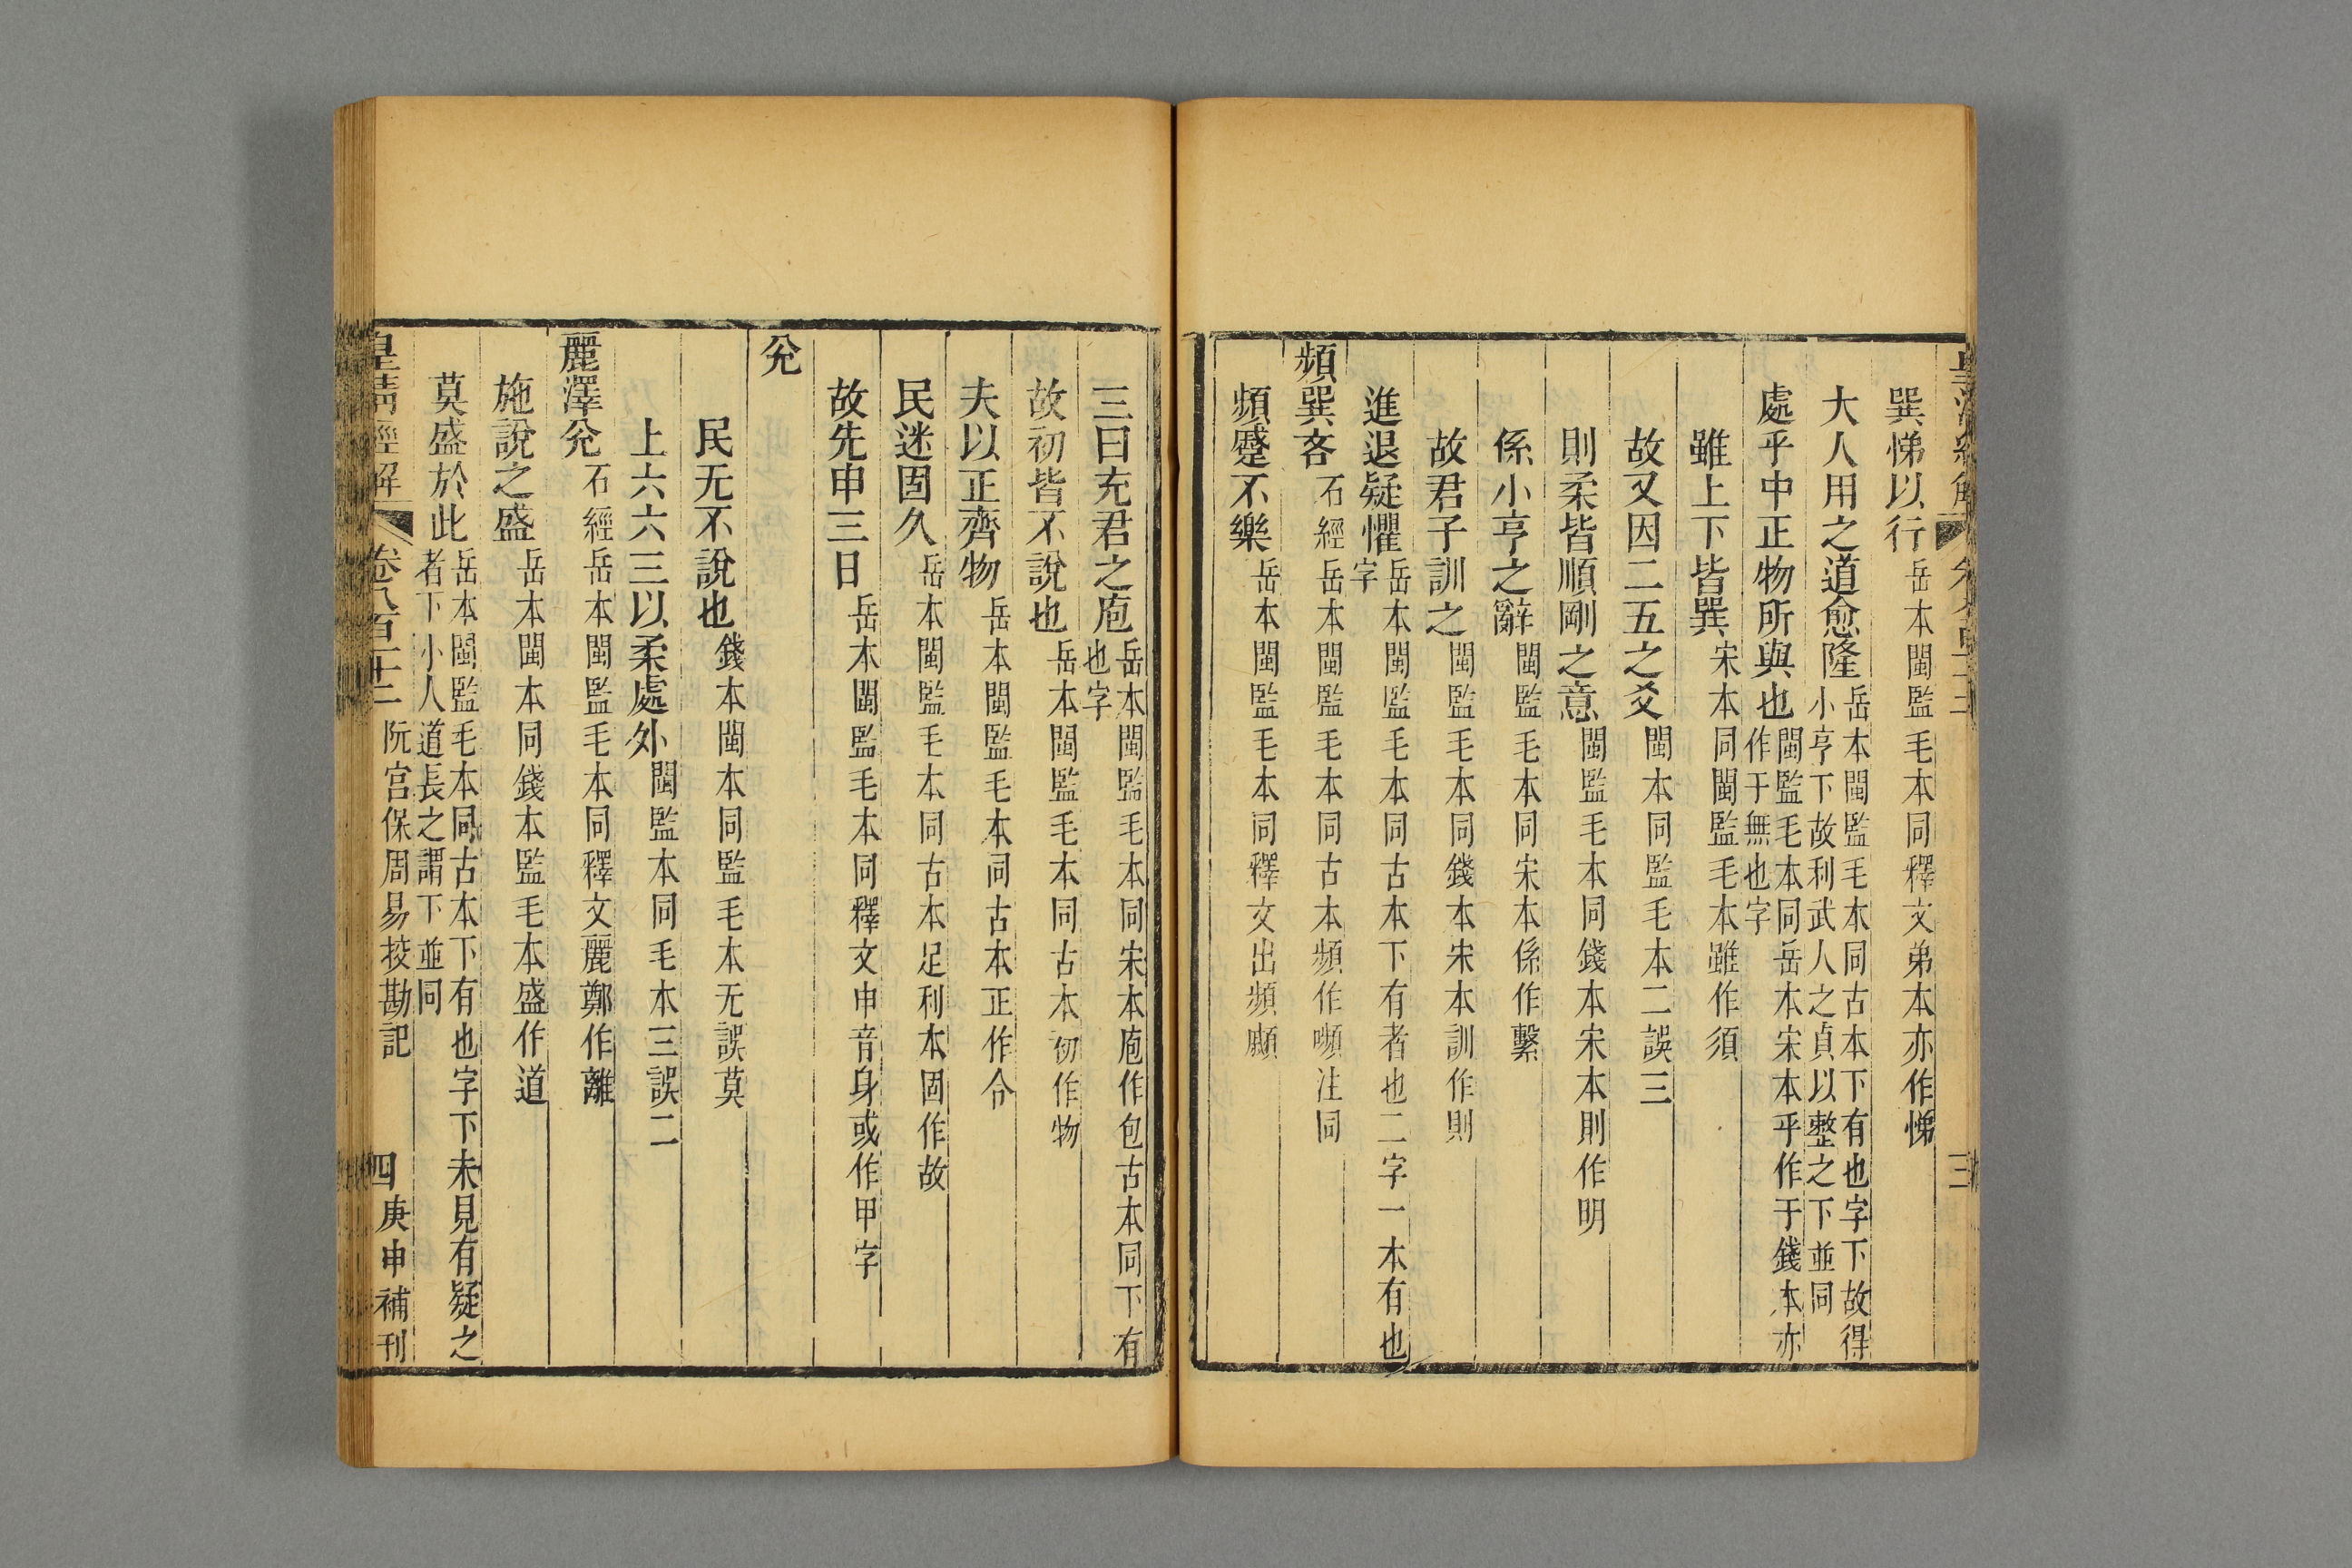 巽悌以行岳本閩監毛本同釋文弟本亦作悌
大人用之道愈隆岳本閩監毛本同古本下有也字下故得小亨下故利武人之貞以整之下並同
處乎中正物所與也閩監毛本同岳本宋本乎作于錢本亦作于無也字
雖上下皆巽宋本同閩監毛本雖作須
故又因二五之爻閩本同監毛本二誤三
則柔皆順剛之意閩監毛本同錢本宋本則作明
係小亨之辭閩監毛本同宋本係作繫
故君子訓之閩監毛本同錢本宋本訓作則
進退疑懼岳本閩監毛本同古本下有者也二字一本有也字
頻巽吝石經岳本閩監毛本同古本頻作嚬注同
頻蹙不樂岳本閩監毛本同釋文出頻顣
三曰充君之庖岳本閩監毛本同宋本庖作包古本同下有也字
故初皆不說也岳本閩監毛本同古本初作物
夫以正齊物岳本閩監毛本同古本正作令
民迷固久岳本閩監毛本同古本足利本固作故
故先申三日岳本閩監毛本同釋文申音身或作甲字
兊
民无不說也錢本閩本同監毛本无誤莫
上六六三以柔處外閩監本同毛本三誤二
麗澤兊石經岳本閩監毛本同釋文麗鄭作離
施說之盛岳本閩本同錢本監毛本盛作道
莫盛於此岳本閩監毛本同古本下有也字下未見有疑之者下小人道長之謂下並同
皇清經解 卷八百十二 阮宮保周易挍勘記 四 庚申補刊